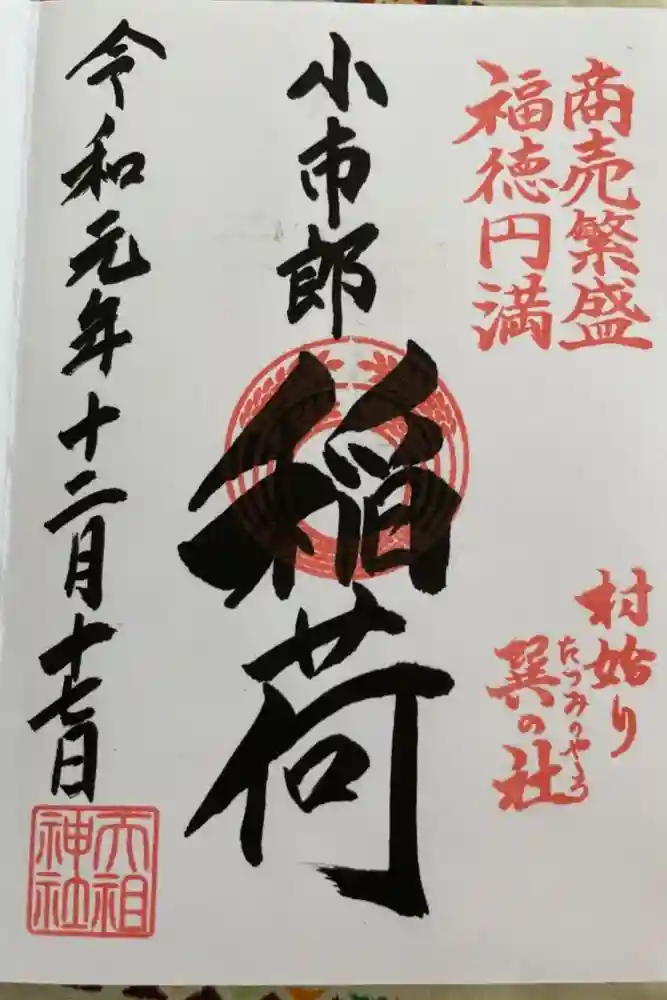 商売繁盛
福徳円満
村始り
巽の社
たつみのやしろ
小市郎
稲荷
令和元年十二月十七日
天祖
神社